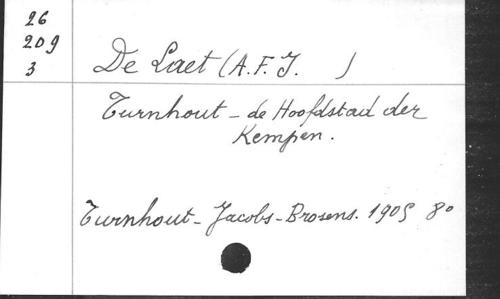 26
209
3
De Laet (A.F.J. )
Turnhout - de Hoofdstad der
Kempen.
Turnhout - Jacobs - Brosens. 1905 8°